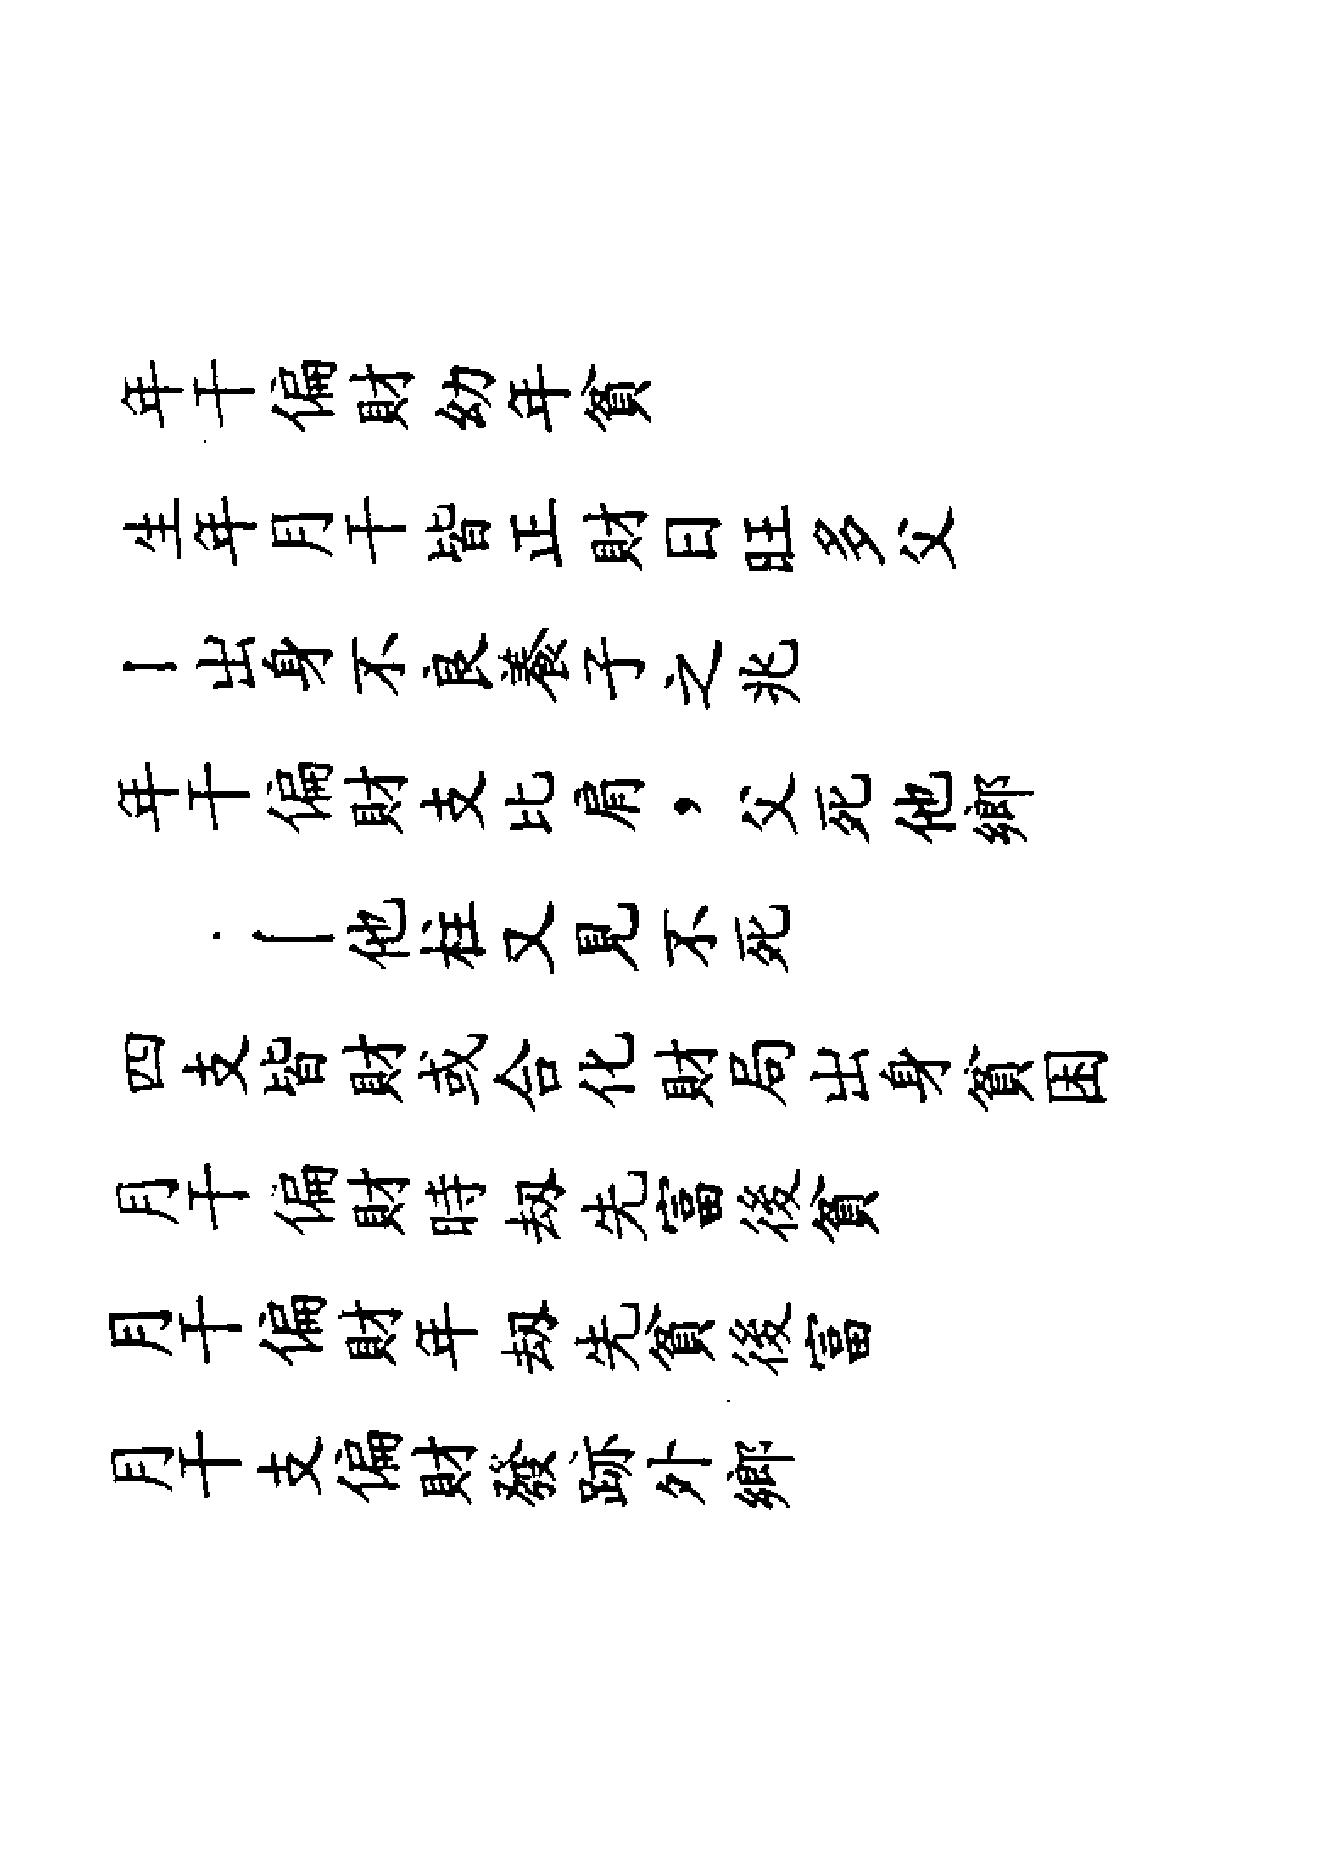 年干偏財幼年貧
生年月干皆正財日旺多父
—出身不良養子之兆
年干偏財支比肩，父死他鄉
—他柱又見不死
四支皆財或合化財局出身貧困
月干偏財時刼先富後貧
月干偏財年刼先貧後富
月干支偏財發跡外鄉